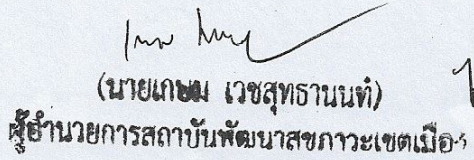 (นายเกษม เวชสุทธานนท์)
ผู้อำนวยการสถาบันพัฒนาสุขภาวะเขตเมือง